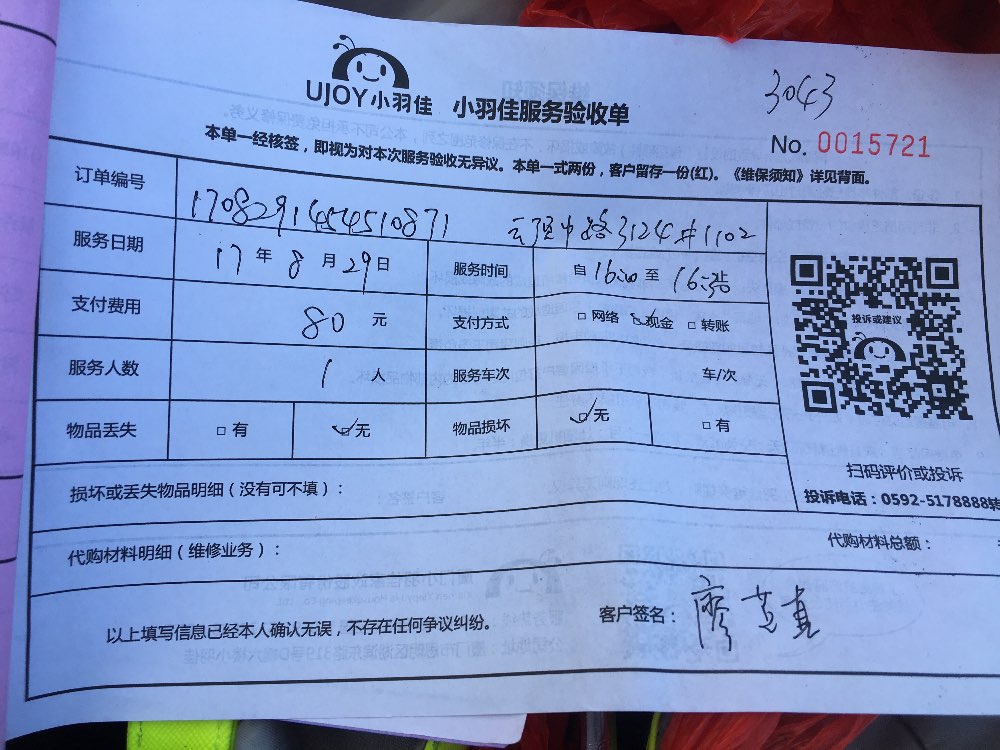 3043
UJOY小羽佳 小羽佳服务验收单
No. 0015721
本单一经核签，即视为对本次服务验收无异议。本单一式两份，客户留存一份(红)。《维保须知》详见背面。
订单编号 170829145451087 1 云顶中路3124#1102
服务日期 17 年 8 月 29 日 服务时间 自 16:00 至 16:30
支付费用 80 元 支付方式 □ 网络 ☑ 现金 □ 转账
服务人数 1 人 服务车次 车/次
物品丢失 □ 有 ☑ 无 物品损坏 ☑ 无 □ 有
投诉或建议
扫码评价或投诉
投诉电话：0592-5178888转
损坏或丢失物品明细（没有可不填）：
代购材料明细（维修业务）： 代购材料总额：
以上填写信息已经本人确认无误，不存在任何争议纠纷。 客户签名：廖